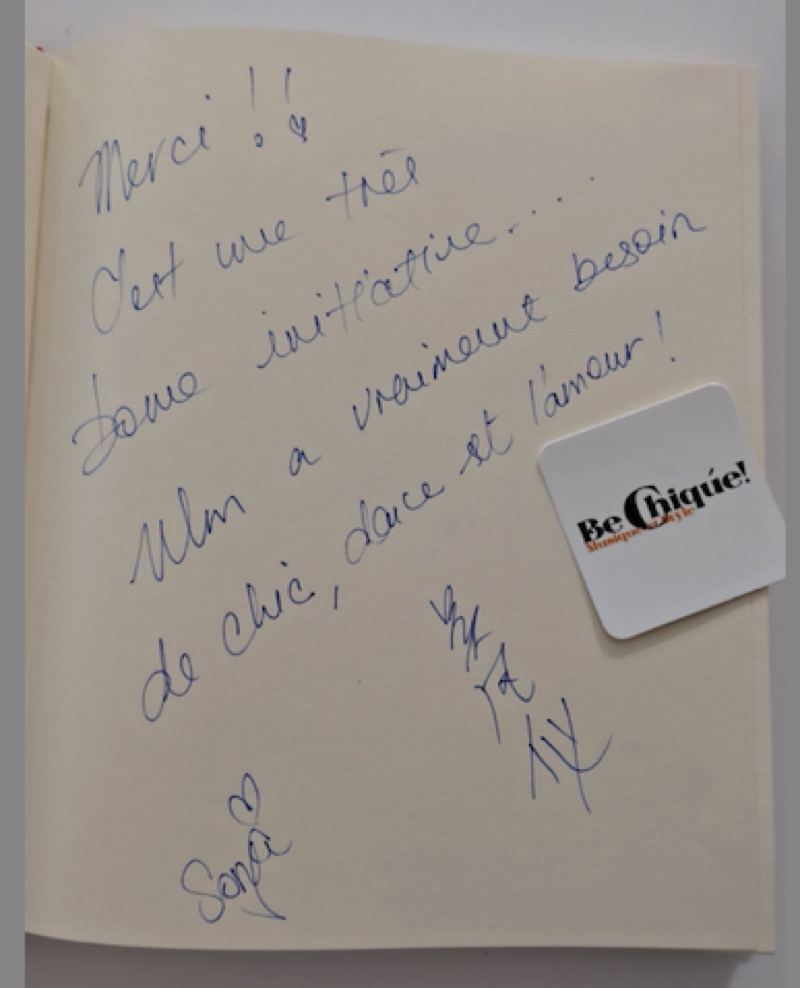 Merci !!
C'est une très
bonne initiative....
Ulm a vraiment besoin
de chic, dance et l'amour !
Be Chiqúe!
Musique et Style
Sonja